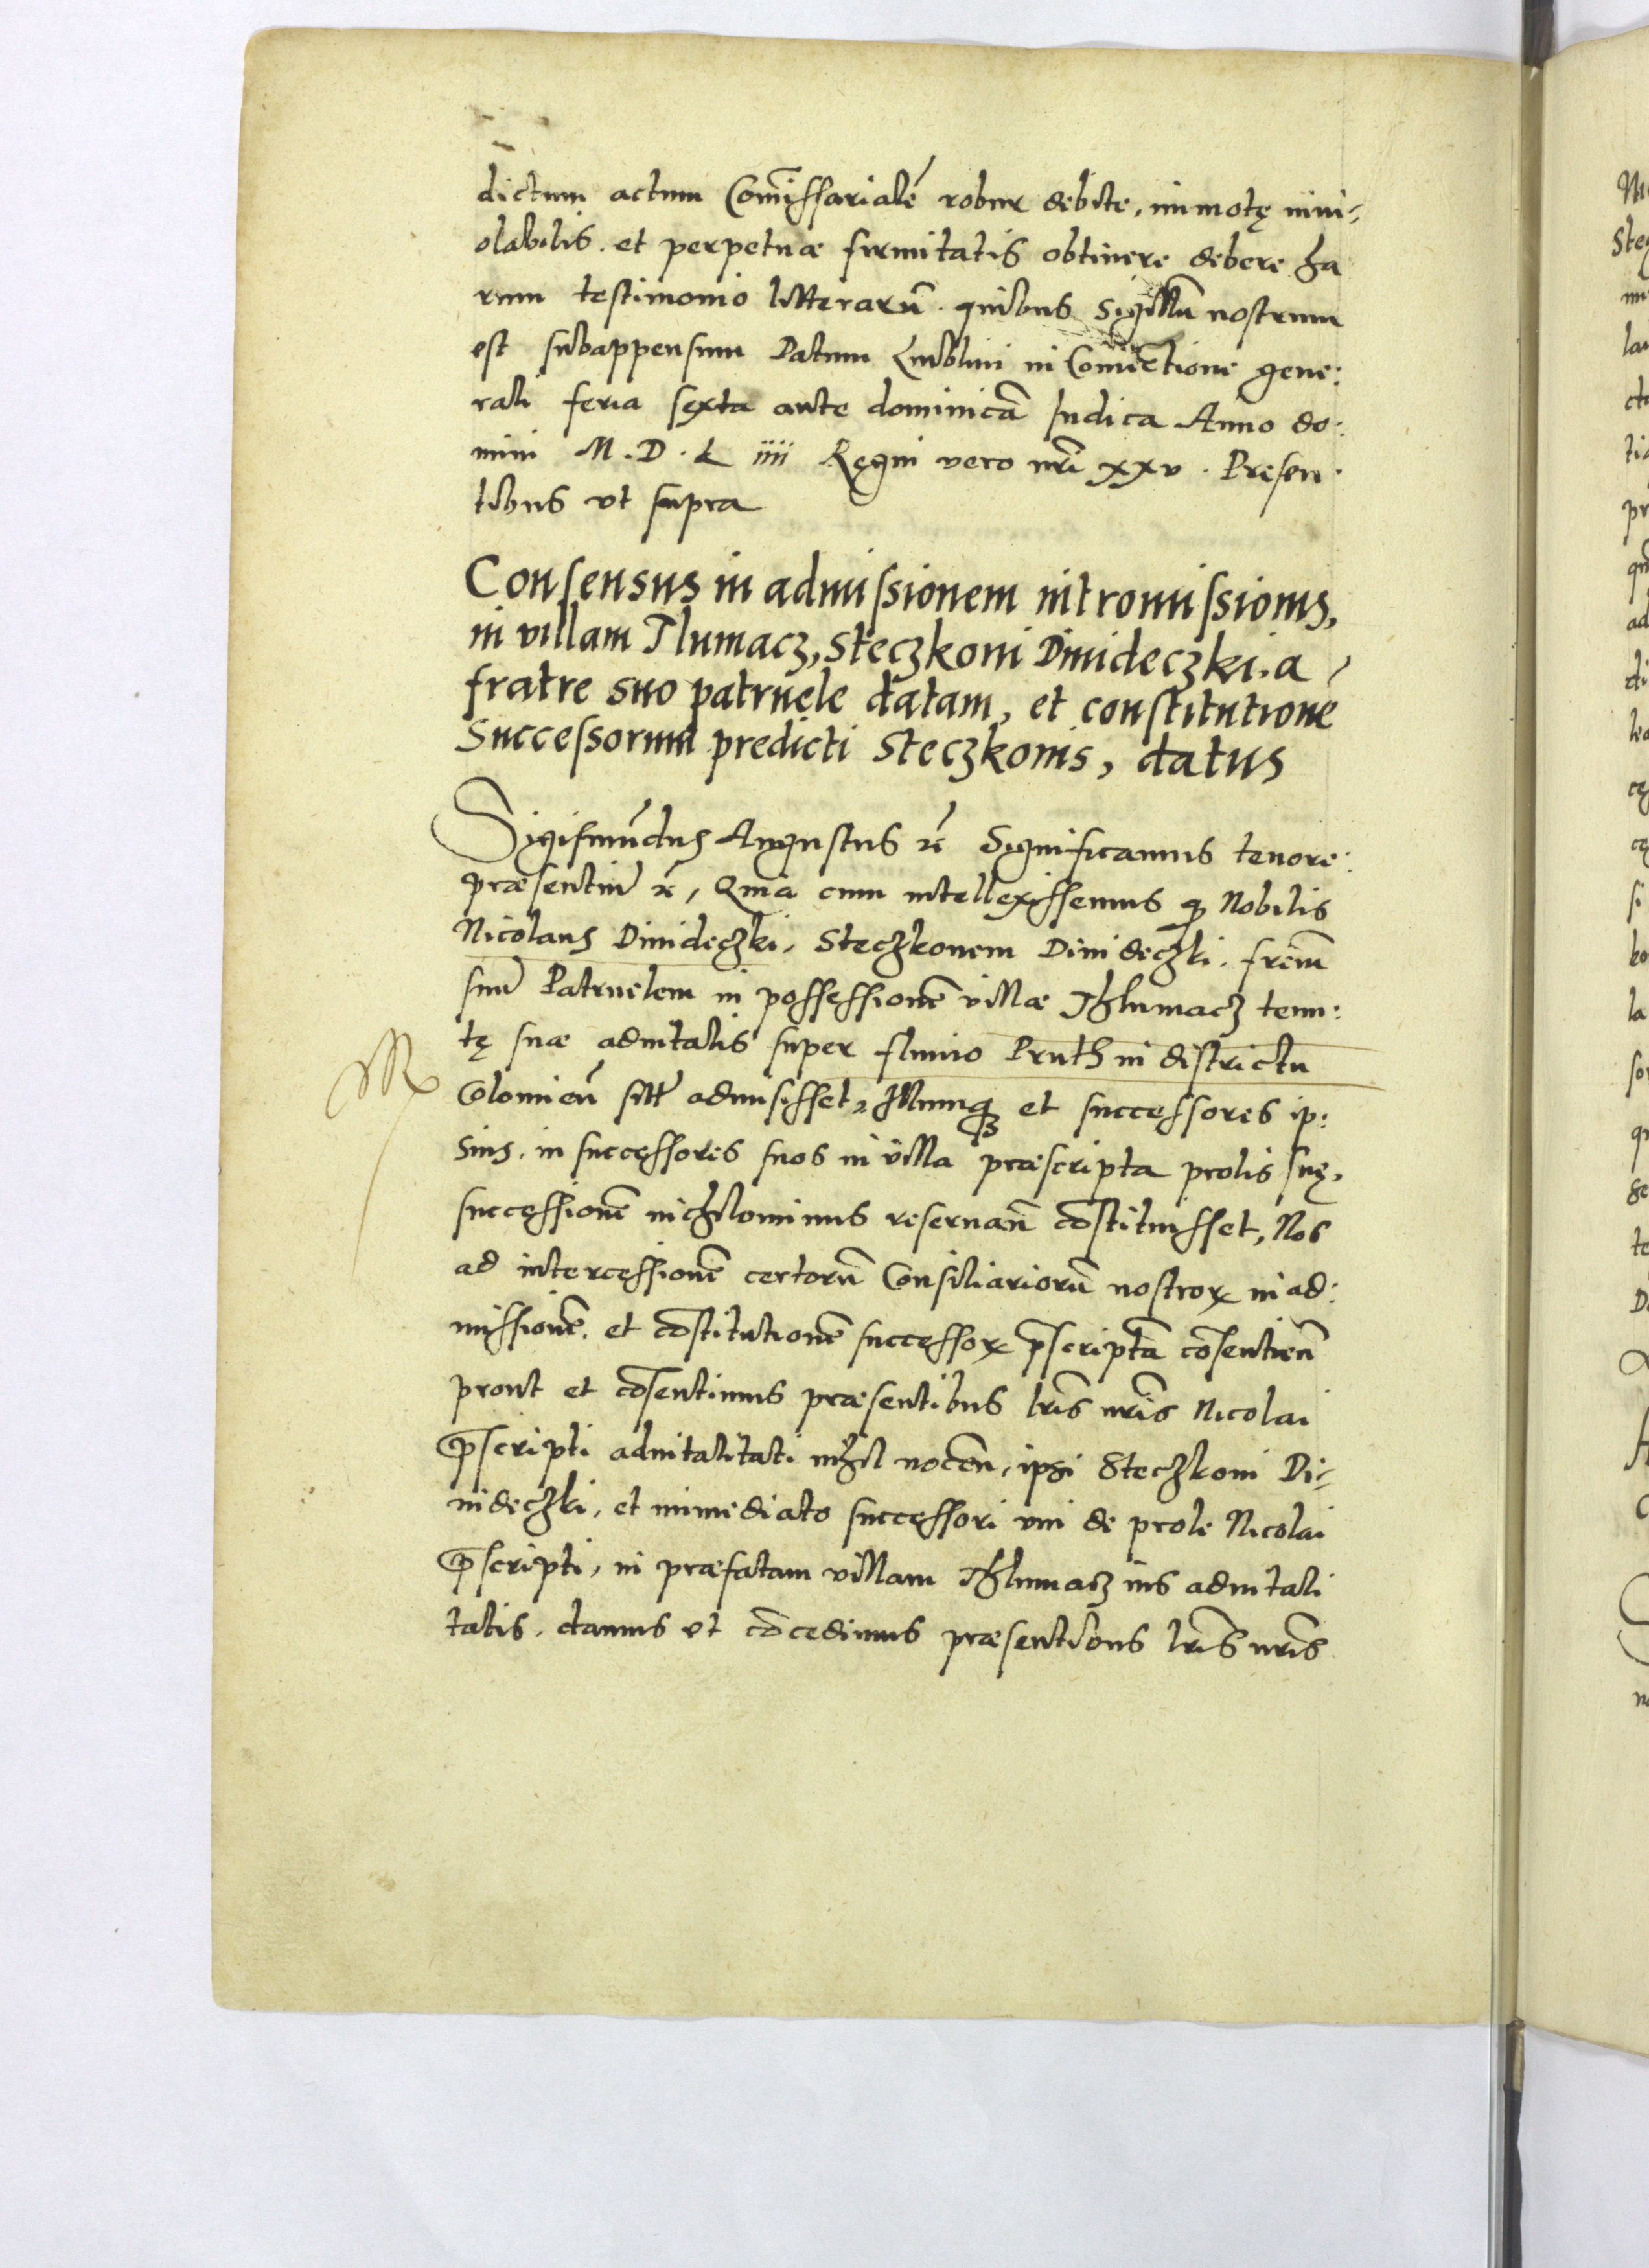 dictum actum Com̃issarialẽ robur debite, immotę inui-
olabilis. et perpetuæ firmitatis obtinere debere ha
rum testimonio litterarũ. quibus Sigillũ nostrum
est subappensum Datum Lublini in Conuẽtione gene:
rali feria sexta ante dominicã Iudica Anno do:
mini M. D. L iiii Regni vero nr̃i xxv. Presen
tibus vt supra
Consensus in admissionem intromissionis,
in villam Tlumacz, Steczkoni Dinideczki. a
fratre suo patruele datam, et constitutionẽ
Successorum predicti Steczkonis, datus
Sigismũdus Augustus &c̃ Significamus tenore:
præsentiũ &c̃, Quia cum intellexissemus q̃ Nobilis
Nicolaus Dinideczki, Steczkonem Dinideczki. fr̃em
suũ Patruelem in possessionẽ villæ Thlumacz tenu:
tę suæ aduitalis super fluuio Pruth in districtu
Colomieñ sitt̃ admisisset, Illumq̃ et successores ip:
sius. in successores suos in villa præscripta prolis suę,
successionẽ nichilominus reseruañ cõstituisset, Nos
ad intercessionẽ certorũ Consiliariorũ nostroꝝ in ad:
missionẽ. et cõstitutionẽ successoꝝ p̃scriptã cõsentieñ
prout et cõsentimus præsentibus lr̃is nr̃is Nicolai
p̃scripti aduitalitati nihil nocen̄, ipsi Steczkoni Di-
nideczki, et immediato successori vni de prole Nicolai
p̃scripti, in præfatam villam Thlumacz ius aduitali
tatis. damus et cõcedimus præsentibus lr̃is nr̃is